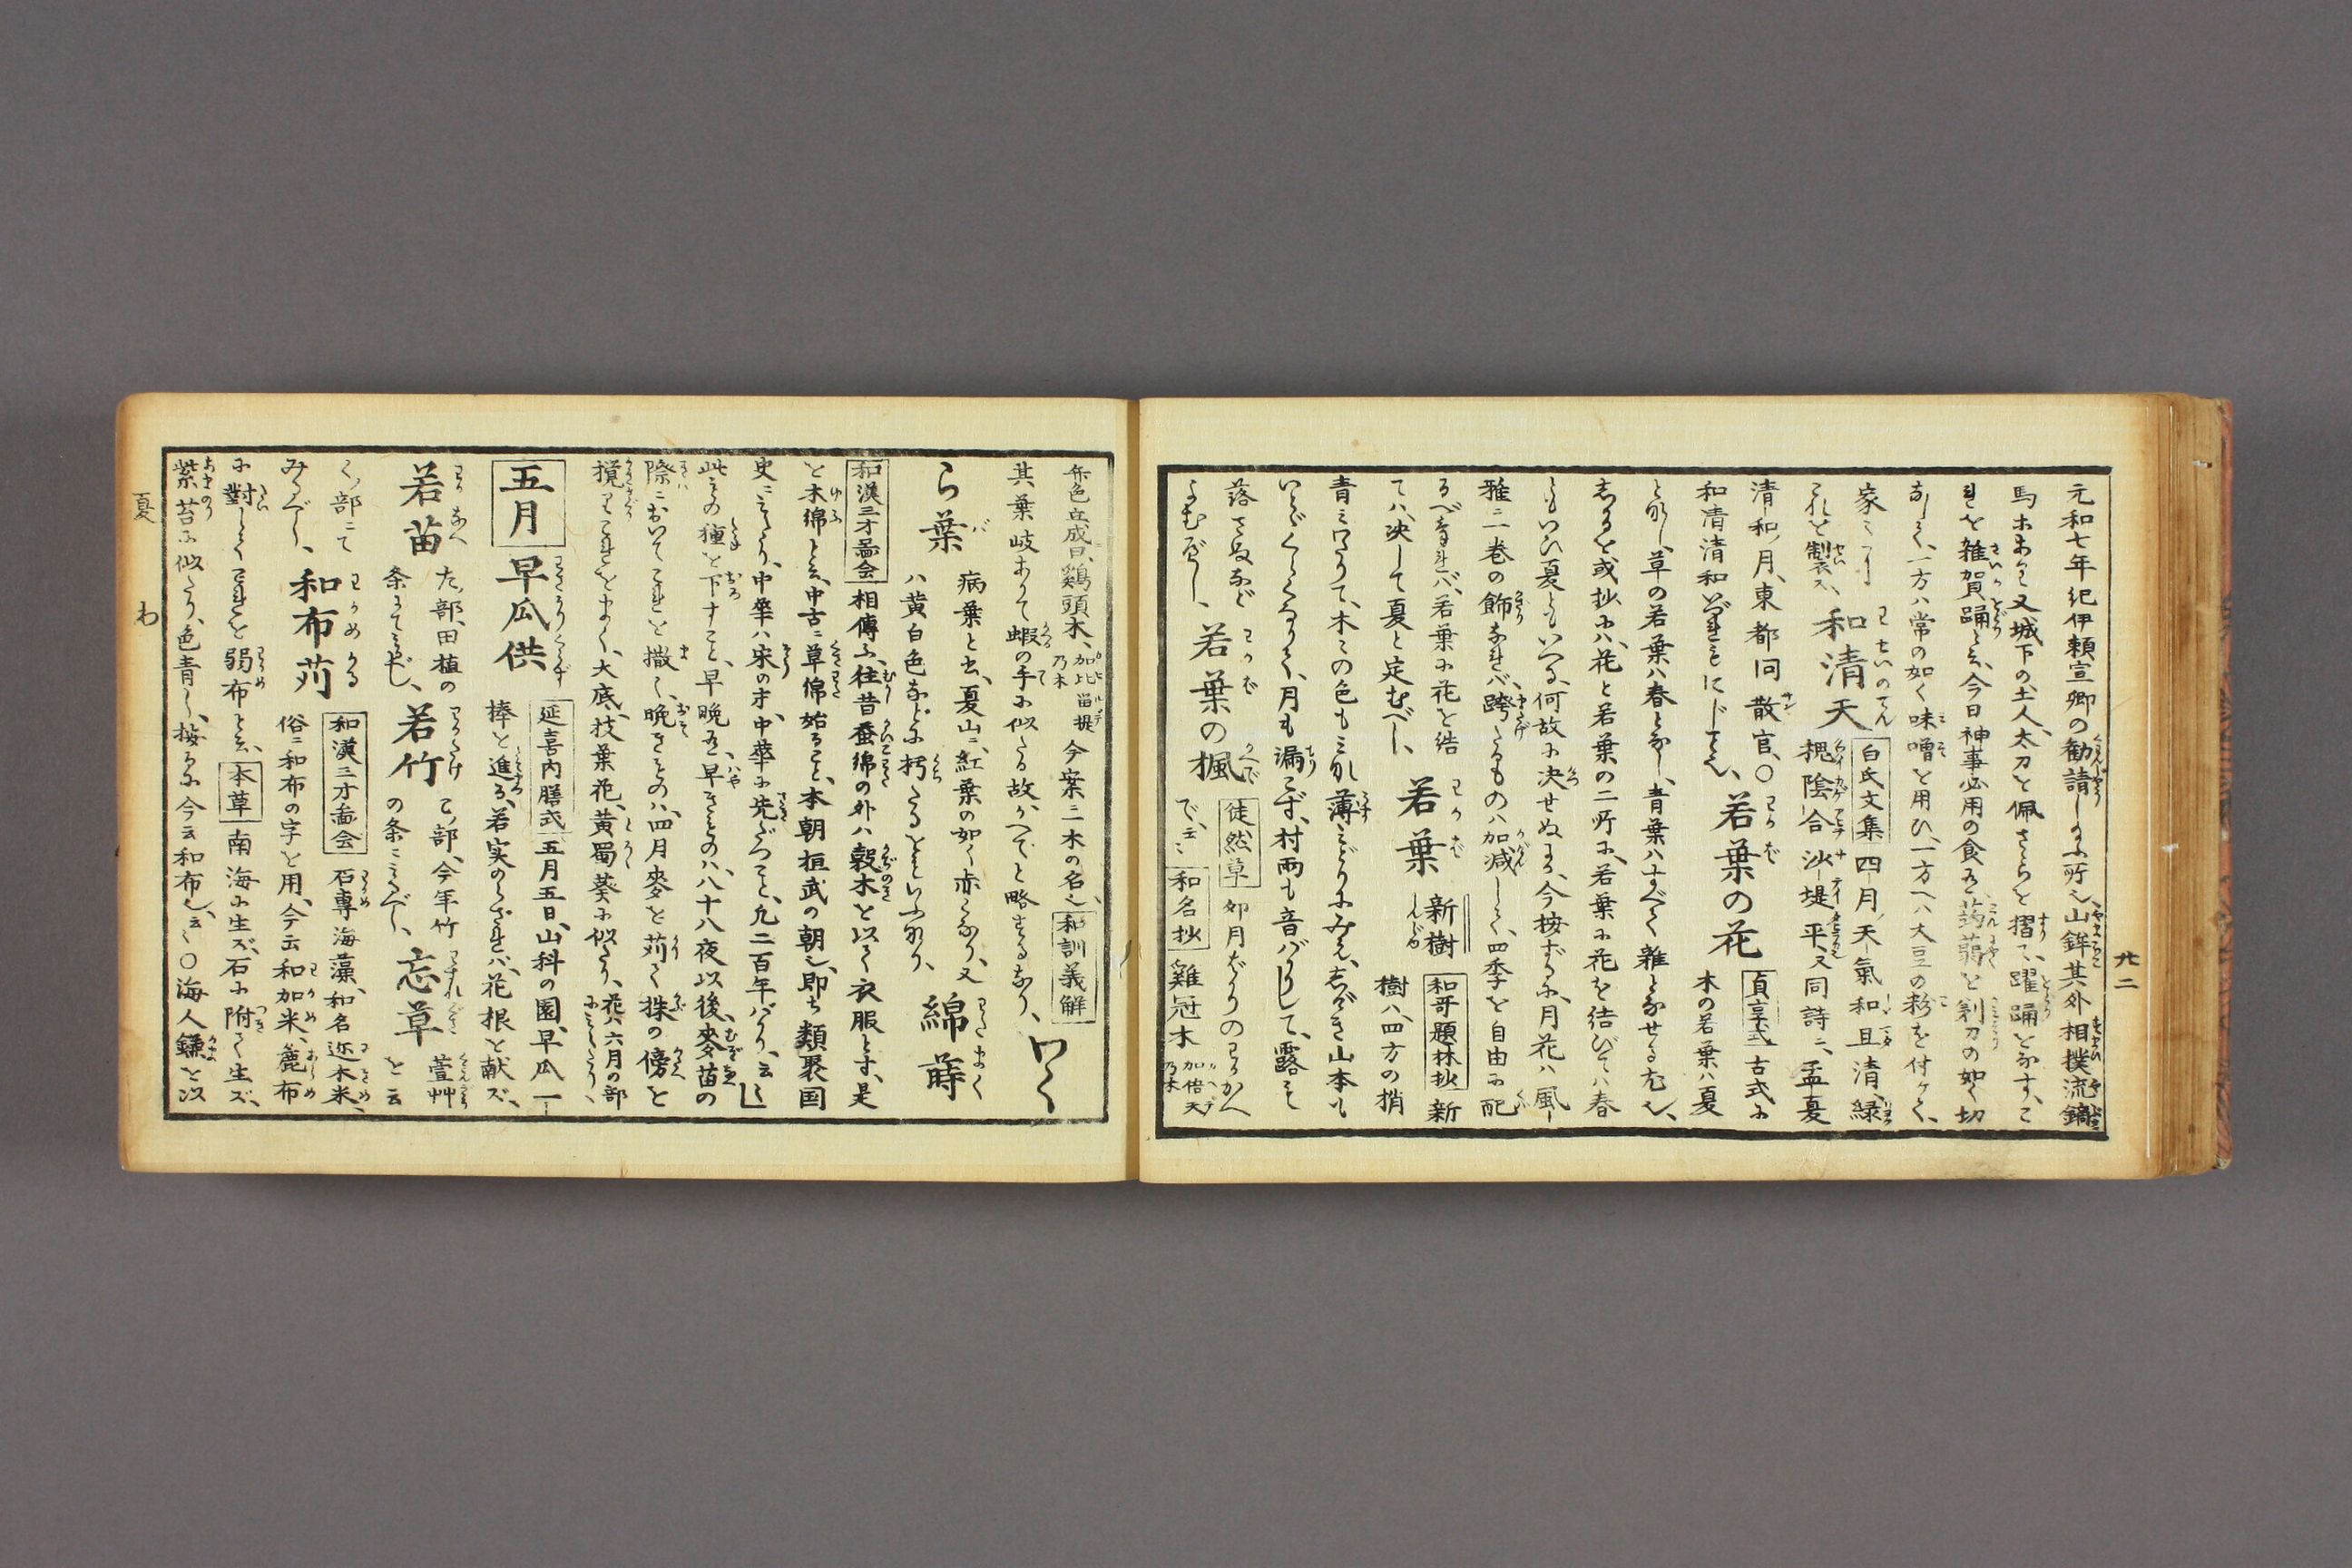 元和七年紀伊頼宣卿の勧請しゝ所也、山鉾其外相撲流鏑
馬ホあり又城下の土人、太刀を佩さゝらを摺て、躍踊をなす、こ
れを雑賀踊と云、今日神事必用の食を蒟蒻を剃刀の如く切
なして、一方ハ常の如く味噌を用ひ、一方へハ大豆の粉を付けて、
家ミ
これを製ス、
和清天
白氏文集
四月天氣和且清、緑
槐陰合沙堤平、又同詩ニ、孟夏
清和ノ月、東都同散官、○
若葉の花
貞享式
古式ふ
和清清和いづれもにじてん、
木の若葉ハ夏
となし、草の若葉ハ春となし、青葉ハすべて雑となせる尤也、
志かるを或抄ふハ、花と若葉の二所に、若葉に花を結びてハ春
ともいひ夏ともいへる、何故ふ决せぬよ、今按ずるふ、月花ハ風
雅二巻の飾なれバ、跨たるものハ加减して、四季を自由ふ配
るべけれバ、若葉ふ花を結
てハ决して夏と定むべし、
若葉
新樹
和哥題林抄
新
樹ハ、四方の梢
青ミわたりて、木ミの色もミな薄ミどりふみえ、志げき山本も
いとゞくらくなりて、月も漏こず、村雨も音バかりして、露そ
落さぬなど
よむべし、
若葉の楓
徒然草
卯月ばかりのわかかへ
で、云ミ
和名抄
雞冠木
加倍天乃木
弁色立成曰、鷄頭木、加比留提乃木
今案二木の名也、
和訓義解
其葉岐ありて蝦の手ふ似たる故、かへでと略するなり、
わくら葉
病葉と書、夏山ニ、紅葉の如く赤くなり、又
ハ黄白色などふ朽たるをといふなり、
綿蒔
和漢三才啚会
相傳ふ、往昔蚕綿の外ハ穀木を以て衣服とす、是
を木綿と云、中古ニ草綿始ること、本朝桓武の朝也、即ち類聚国
史ニミえたり、中華ハ宋の才、中華ふ先だつこと、凡二百年バかり、云云
此ミの種を下すこと、早晩有、早きものハ、八十八夜以後、麥苗の
際ニおいてこれを撒く、晩きものハ、四月麥を苅て株の傍を
攪てこれをまく、大底、技葉花、黄蜀葵ふ似たり、花ハ六月の部
五月
早瓜供
延喜内膳式
五月五日、山科の園、早瓜一
捧を進る、若実のらざれバ、花根を献ズ、
若苗
た部、田植の
条にてミべし、
若竹
こノ部、今年竹
の条ニミべし、
忘草
萱艸
と云
く部ニて
みるべし、
和布苅
和漢三才啚会
石蓴海藻、和名迩木米、
俗ニ和布の字を用、今云和加米、麁布
ふ對してこれを弱布と云、
本草
南海ふ生ズ、石ふ附て生ズ、
紫苔ふ似たり、色青し、按るふ今云和布也、云ミ○海人鎌を以
夏
わ
廿二